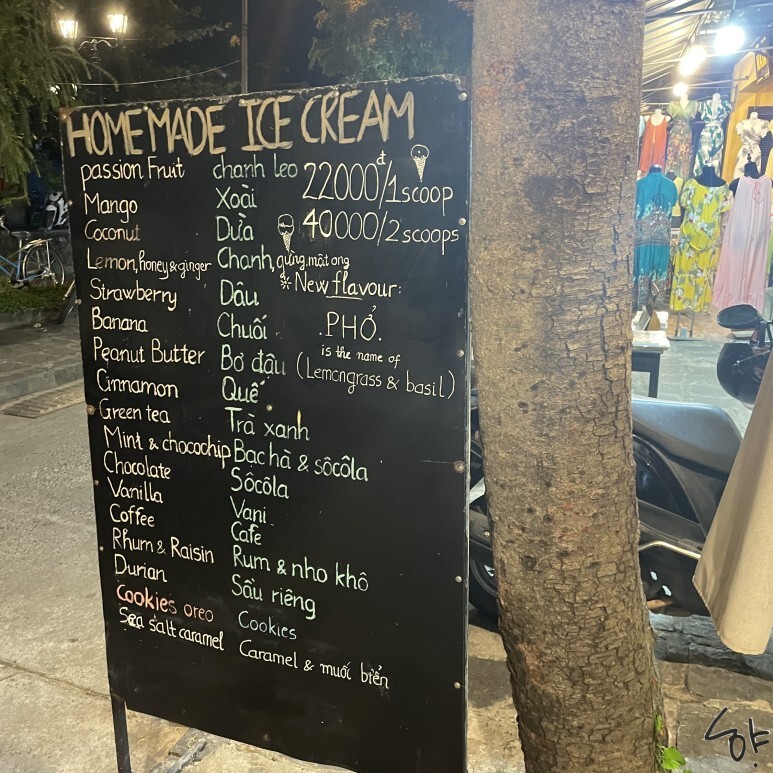 HOMEMADE ICE CREAM
passion Fruit chanh leo 22000đ/1scoop
Mango Xoài
Coconut Dừa 40000/2 scoops
Lemon, honey & ginger Chanh, gừng, mật ong
Strawberry Dâu
※ New flavour:
Banana Chuối
.PHỞ.
Peanut Butter Bơ đậu
is the name of
(Lemongrass & basil)
Cinnamon Quế
Green tea Trà xanh
Mint & chocochip Bạc hà & sôcôla
Chocolate Sôcôla
Vanilla Vani
Coffee Cafe
Rhum & Raisin Rum & nho khô
Durian Sầu riêng
Cookies oreo Cookies
Sea salt caramel Caramel & muối biển